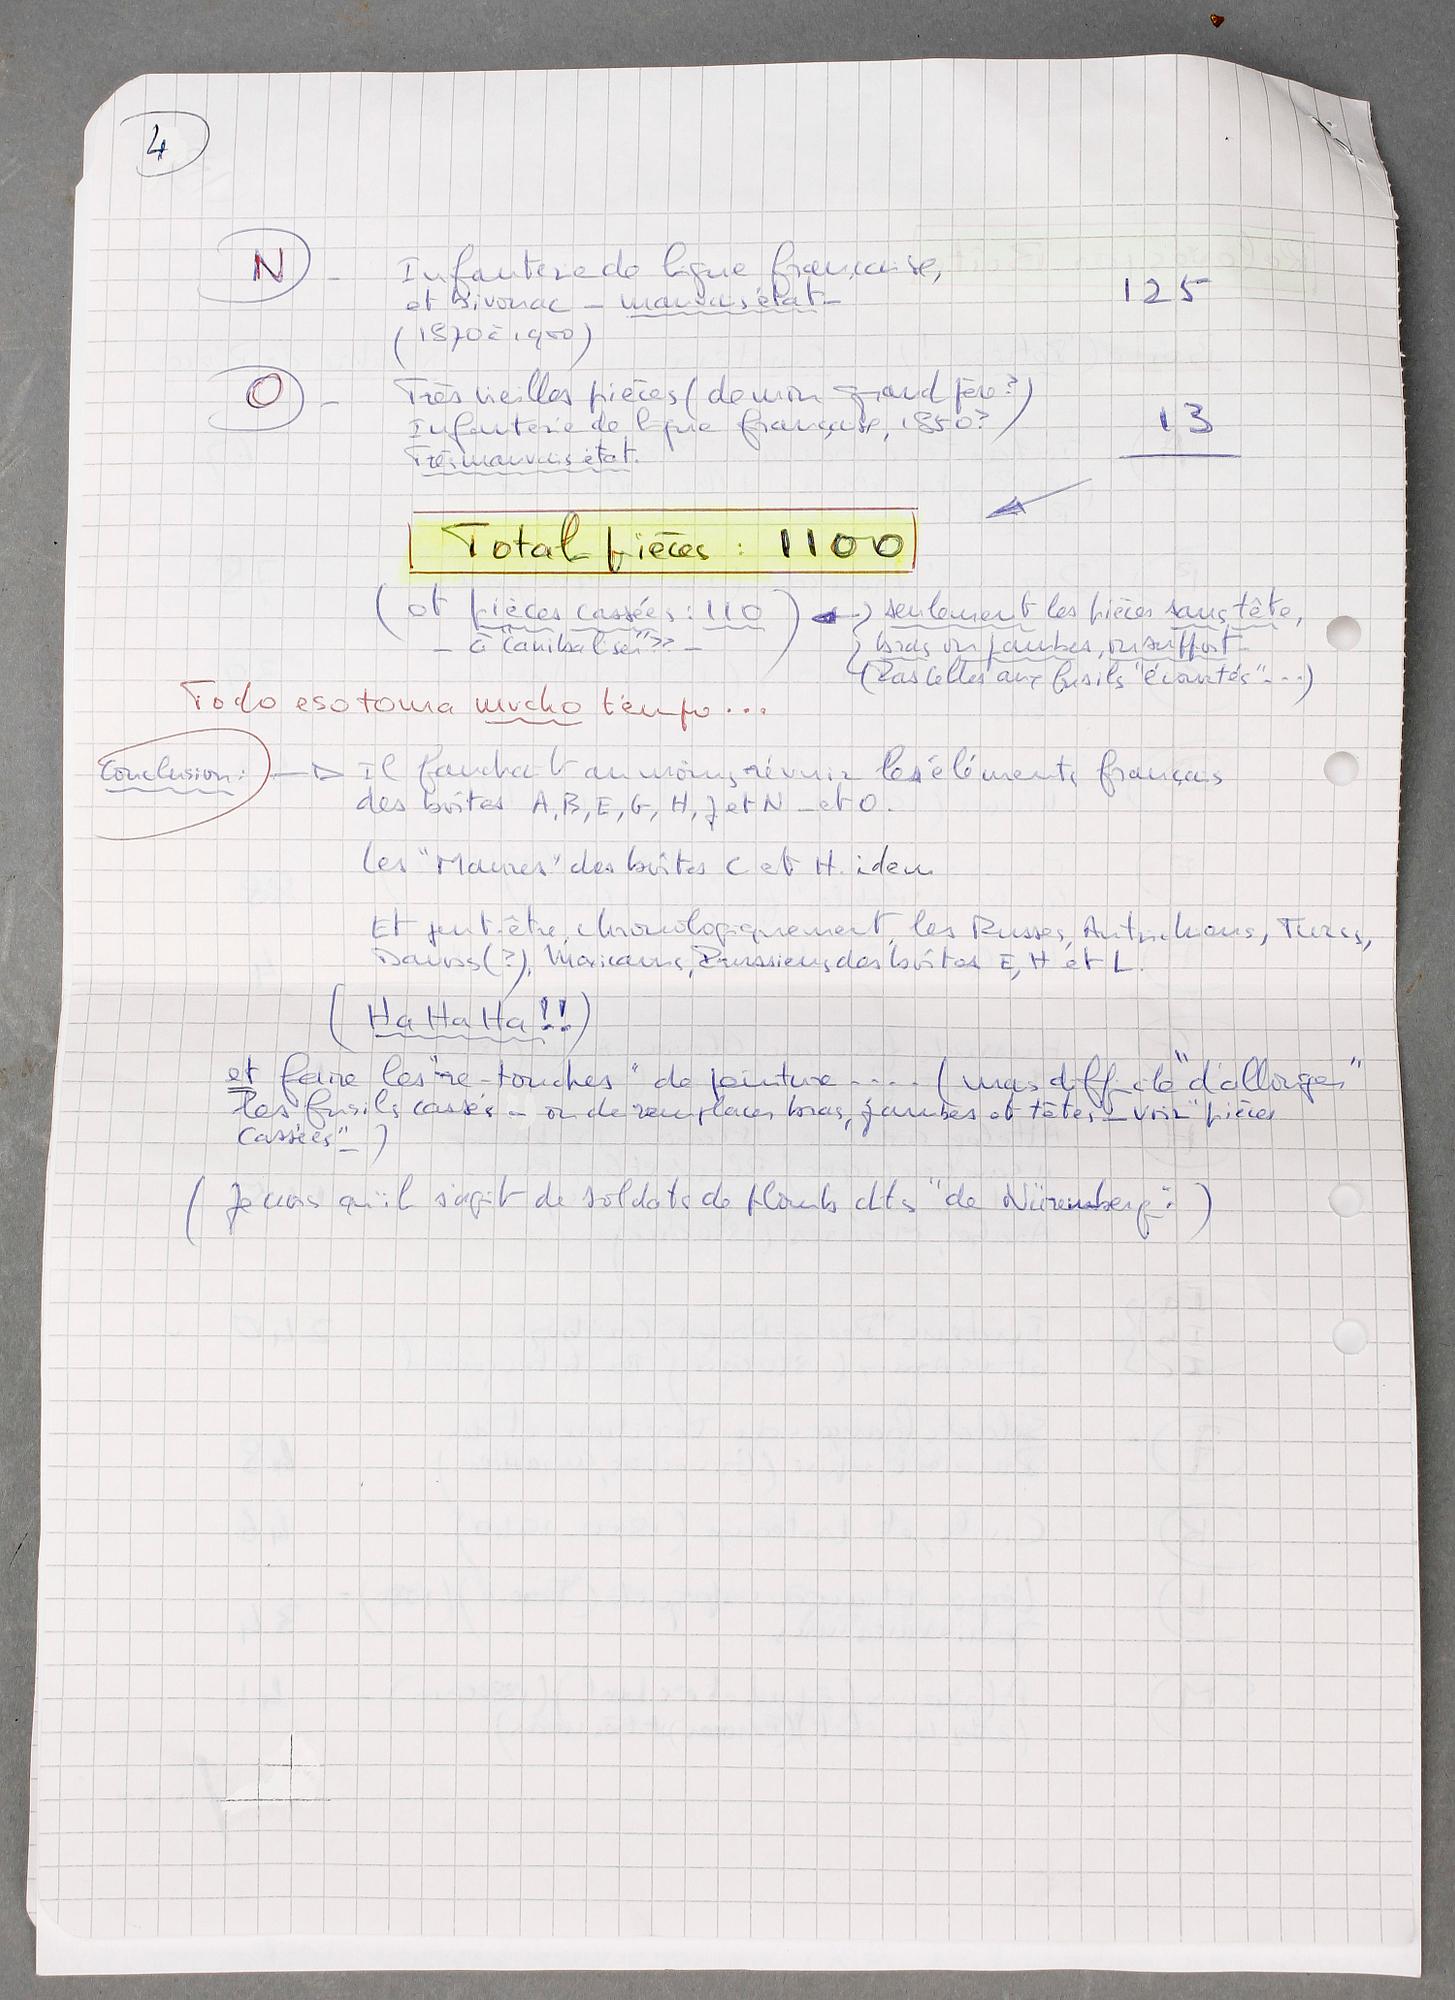 4
N - Infanterie de ligne française, 125
et bivouac - mauvais état -
(1870 à 1900)
O - Très vieilles pièces (de mon grand père?) 13
Infanterie de ligne française, 1850?)
Très mauvais état.
Total pièces : 1100
(et pièces cassées : 110) seulement les pièces sans tête,
- à "canibaliser"?? - bras ou jambes, ou support -
(Pas celles aux fusils "écourtés" ...)
Todo eso toma mucho tempo ...
Conclusion : Il faudrait au moins réunir les éléments français
des boîtes A, B, E, G, H, J et N - et O.
les "Maures" des boîtes C et H. idem
Et peut-être, chronologiquement, les Russes, Autrichiens, Turcs,
Danois(?), Mexicains, Prussiens des boîtes E, H et L.
(Ha Ha Ha !!)
et faire les "re-touches" de peinture .... (mais difficile "d'allonger"
les fusils cassés - ou de remplacer bras, jambes et têtes - voir "pièces
cassées" - )
(Je crois qu'il s'agit de soldats de plomb dits "de Nüremberg".)